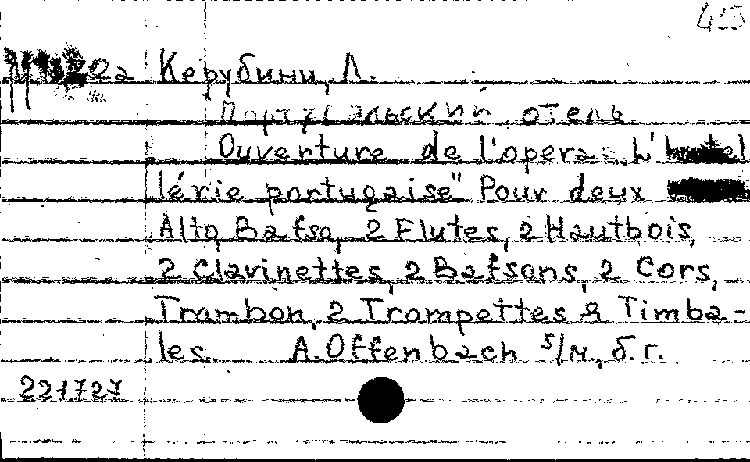 453
Керубини, Л.
Португальский отель
Ouverture de l'opera L'hotel
lérie portugaise" Pour deux
Alto, Bafso, 2 Flutes, 2 Hautbois,
2 Clarinettes, 2 Bafsons, 2 Cors,
Trombon, 2 Trompettes & Timba-
les. A. Offenbach s/м, б.г.
221727